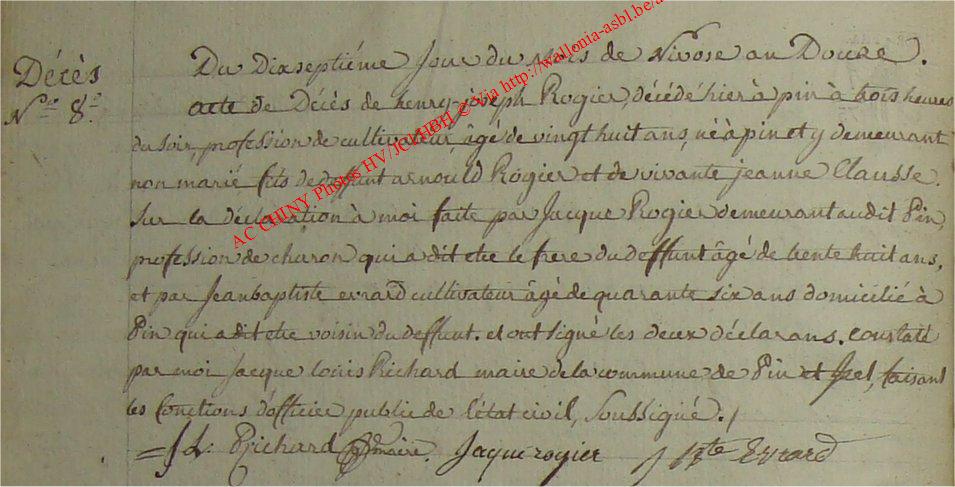 Décès
N.º 8.º
Du Dixseptiéme Jour du Mois de Nivose an Douze.
acte de Décès de henry-joseph Rogier, décédé hier à pin à trois heures
du soir, profession de cultivateur, âgé de vingt huit ans, né à pin et y demeurant
non marié fils de deffunt arnould Rogier et de vivante jeanne Clausse.
Sur la déclaration à moi faite par Jacque Rogier demeurant audit Pin,
profession de charon qui a dit etre le frere du deffunt âgé de trente huit ans,
et par Jeanbaptiste evrard cultivateur âgé de quarante six ans domicilié à
Pin qui a dit etre voisin du deffunt. et ont signé les deux déclarans. constaté
par moi Jacque louis Richard maire de la commune de Pin et Izel, faisant
les fonctions d'officier public de l'état civil, soussigné./
J L. Richard maire. Jaque rogier J Bte Evrard
AC CHINY Photos HV/JCl/HBH CV via http://wallonia-asbl.be/